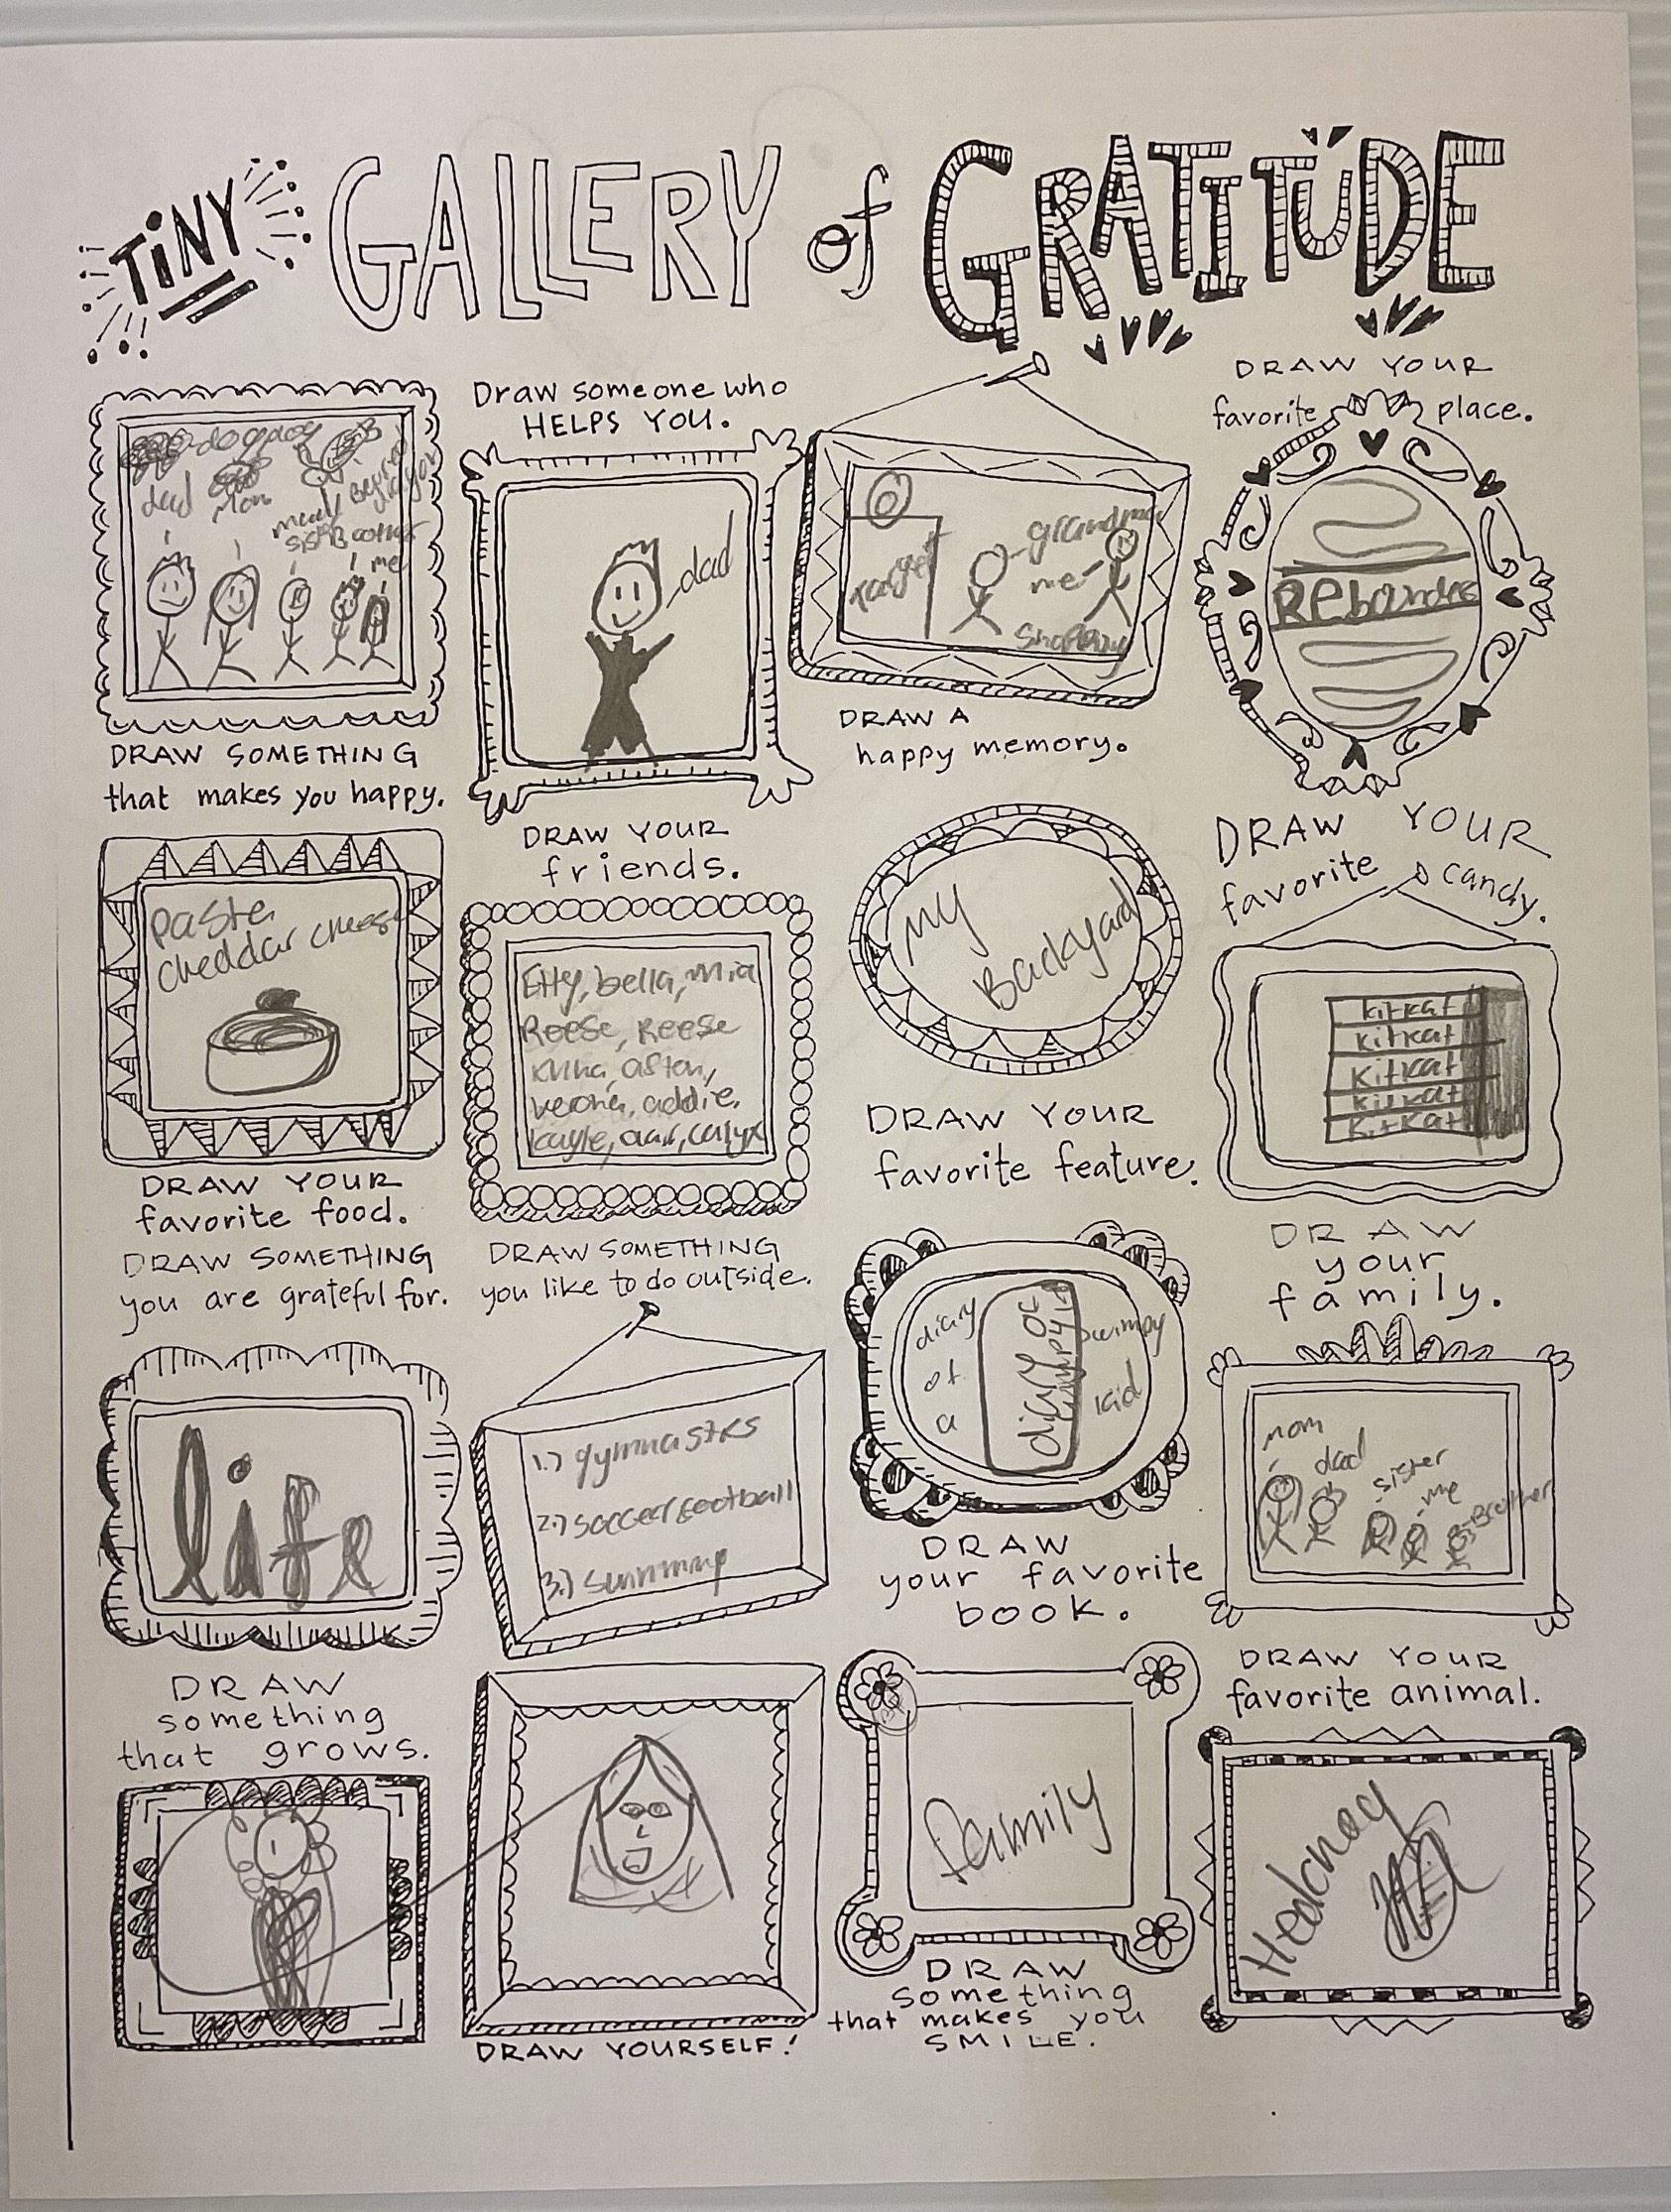 TiNY GALLERY of GRATITUDE
dad
Mom
me
DRAW SOMETHING
that makes you happy.
Draw someone who
HELPS YOU.
dad
Target
grandma
me
DRAW A
happy memory.
DRAW YOUR
favorite place.
Rebounderz
Paste
Cheddar cheese
DRAW YOUR
favorite food.
DRAW YOUR
friends.
Etty, bella, mia
Reese, Reese
aston,
addie,
My
Backyard
DRAW YOUR
favorite feature.
DRAW YOUR
favorite candy.
kitkat
kitkat
kitkat
kitkat
kitkat
DRAW SOMETHING
you are grateful for.
life
DRAW SOMETHING
you like to do outside.
1.) gymnastks
2.) soccer football
3.)
diary
of
a
diary of
wimpy
kid
DRAW
your favorite
book.
DRAW
your
family.
mom
dad
sister
me
Brother
DRAW
something
that grows.
DRAW YOURSELF!
family
DRAW
something
that makes you
SMILE.
DRAW YOUR
favorite animal.